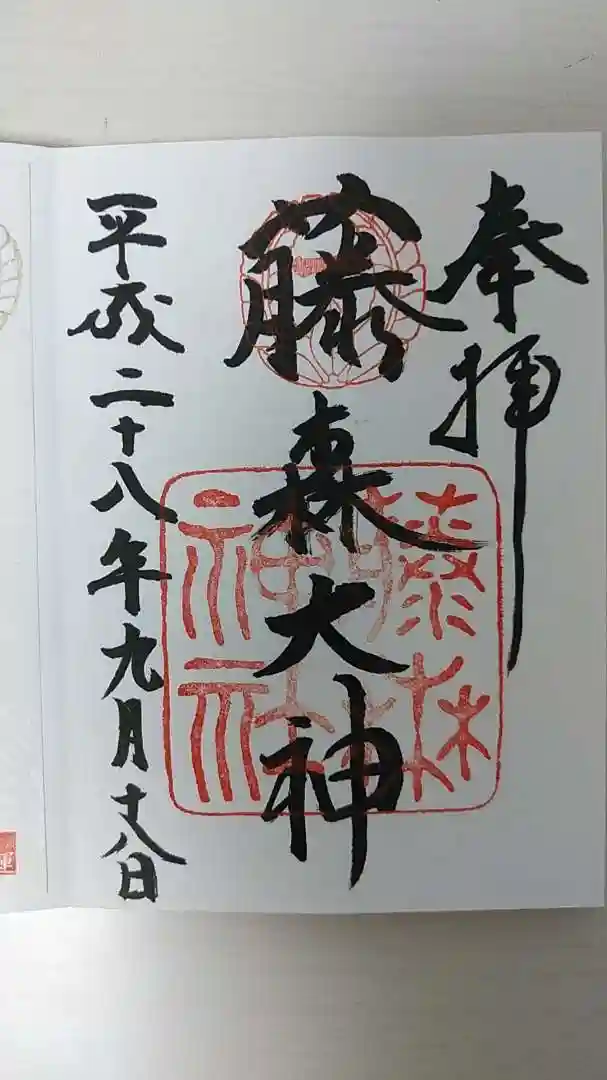 奉拝
藤森大神
藤森神社
平成二十八年九月十八日